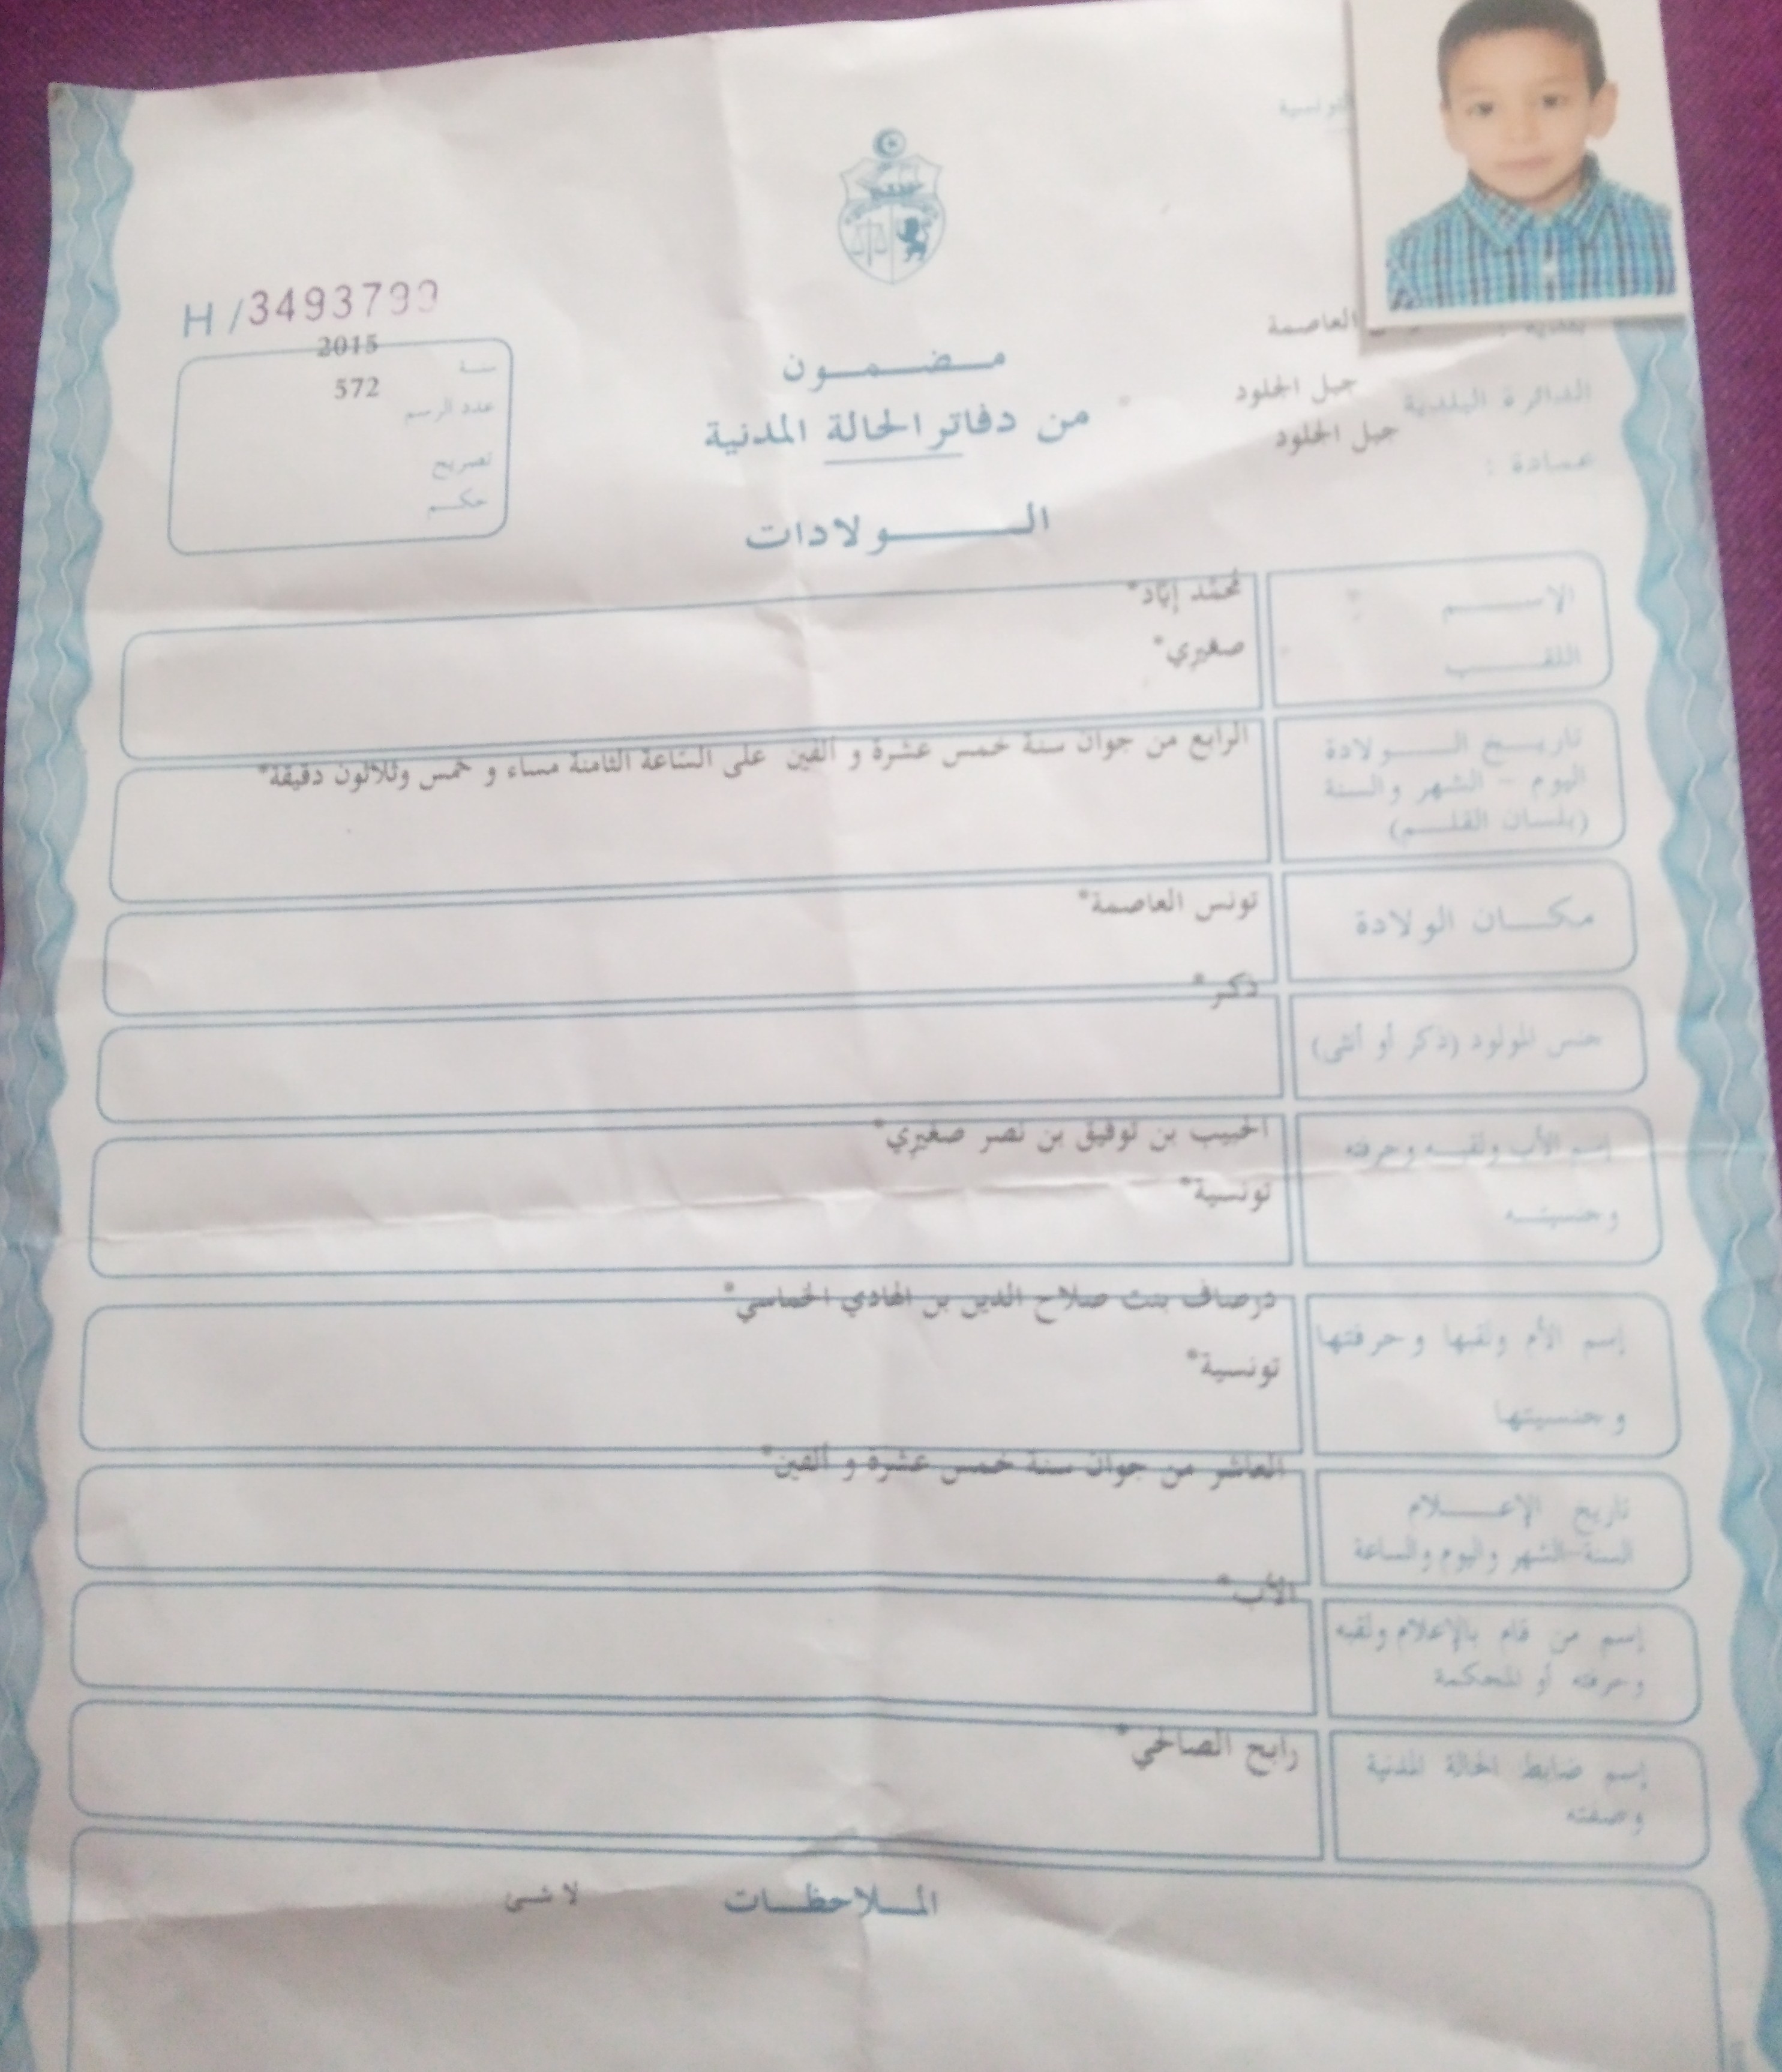 التونسية
H/3493799
العاصمة
2015
سنة
572
عدد الرسم
تصريح
حكم
مضمون
من دفاتر الحالة المدنية
الدائرة البلدية جبل الجلود
عمادة : جبل الجلود
الولادات
الاسم محمّد إيّاد*
اللقب صغيري*
تاريخ الولادة
اليوم - الشهر والسنة
(بلسان القلم)
الرابع من جوان سنة خمس عشرة و ألفين على السّاعة الثامنة مساء و خمس وثلاثون دقيقة*
مكان الولادة تونس العاصمة*
جنس المولود (ذكر أو أنثى) ذكر*
إسم الأب ولقبه وحرفته الحبيب بن توفيق بن نصر صغيري*
وجنسيته تونسية*
إسم الأم ولقبها وحرفتها درصاف بنت صلاح الدين بن الهادي الخماسي*
وجنسيتها تونسية*
تاريخ الإعلام العاشر من جوان سنة خمس عشرة و ألفين*
السنة-الشهر واليوم والساعة
إسم من قام بالإعلام ولقبه الأب*
وحرفته أو المحكمة
إسم ضابط الحالة المدنية رابح الصالحي*
وصفته
الملاحظات لا شىء